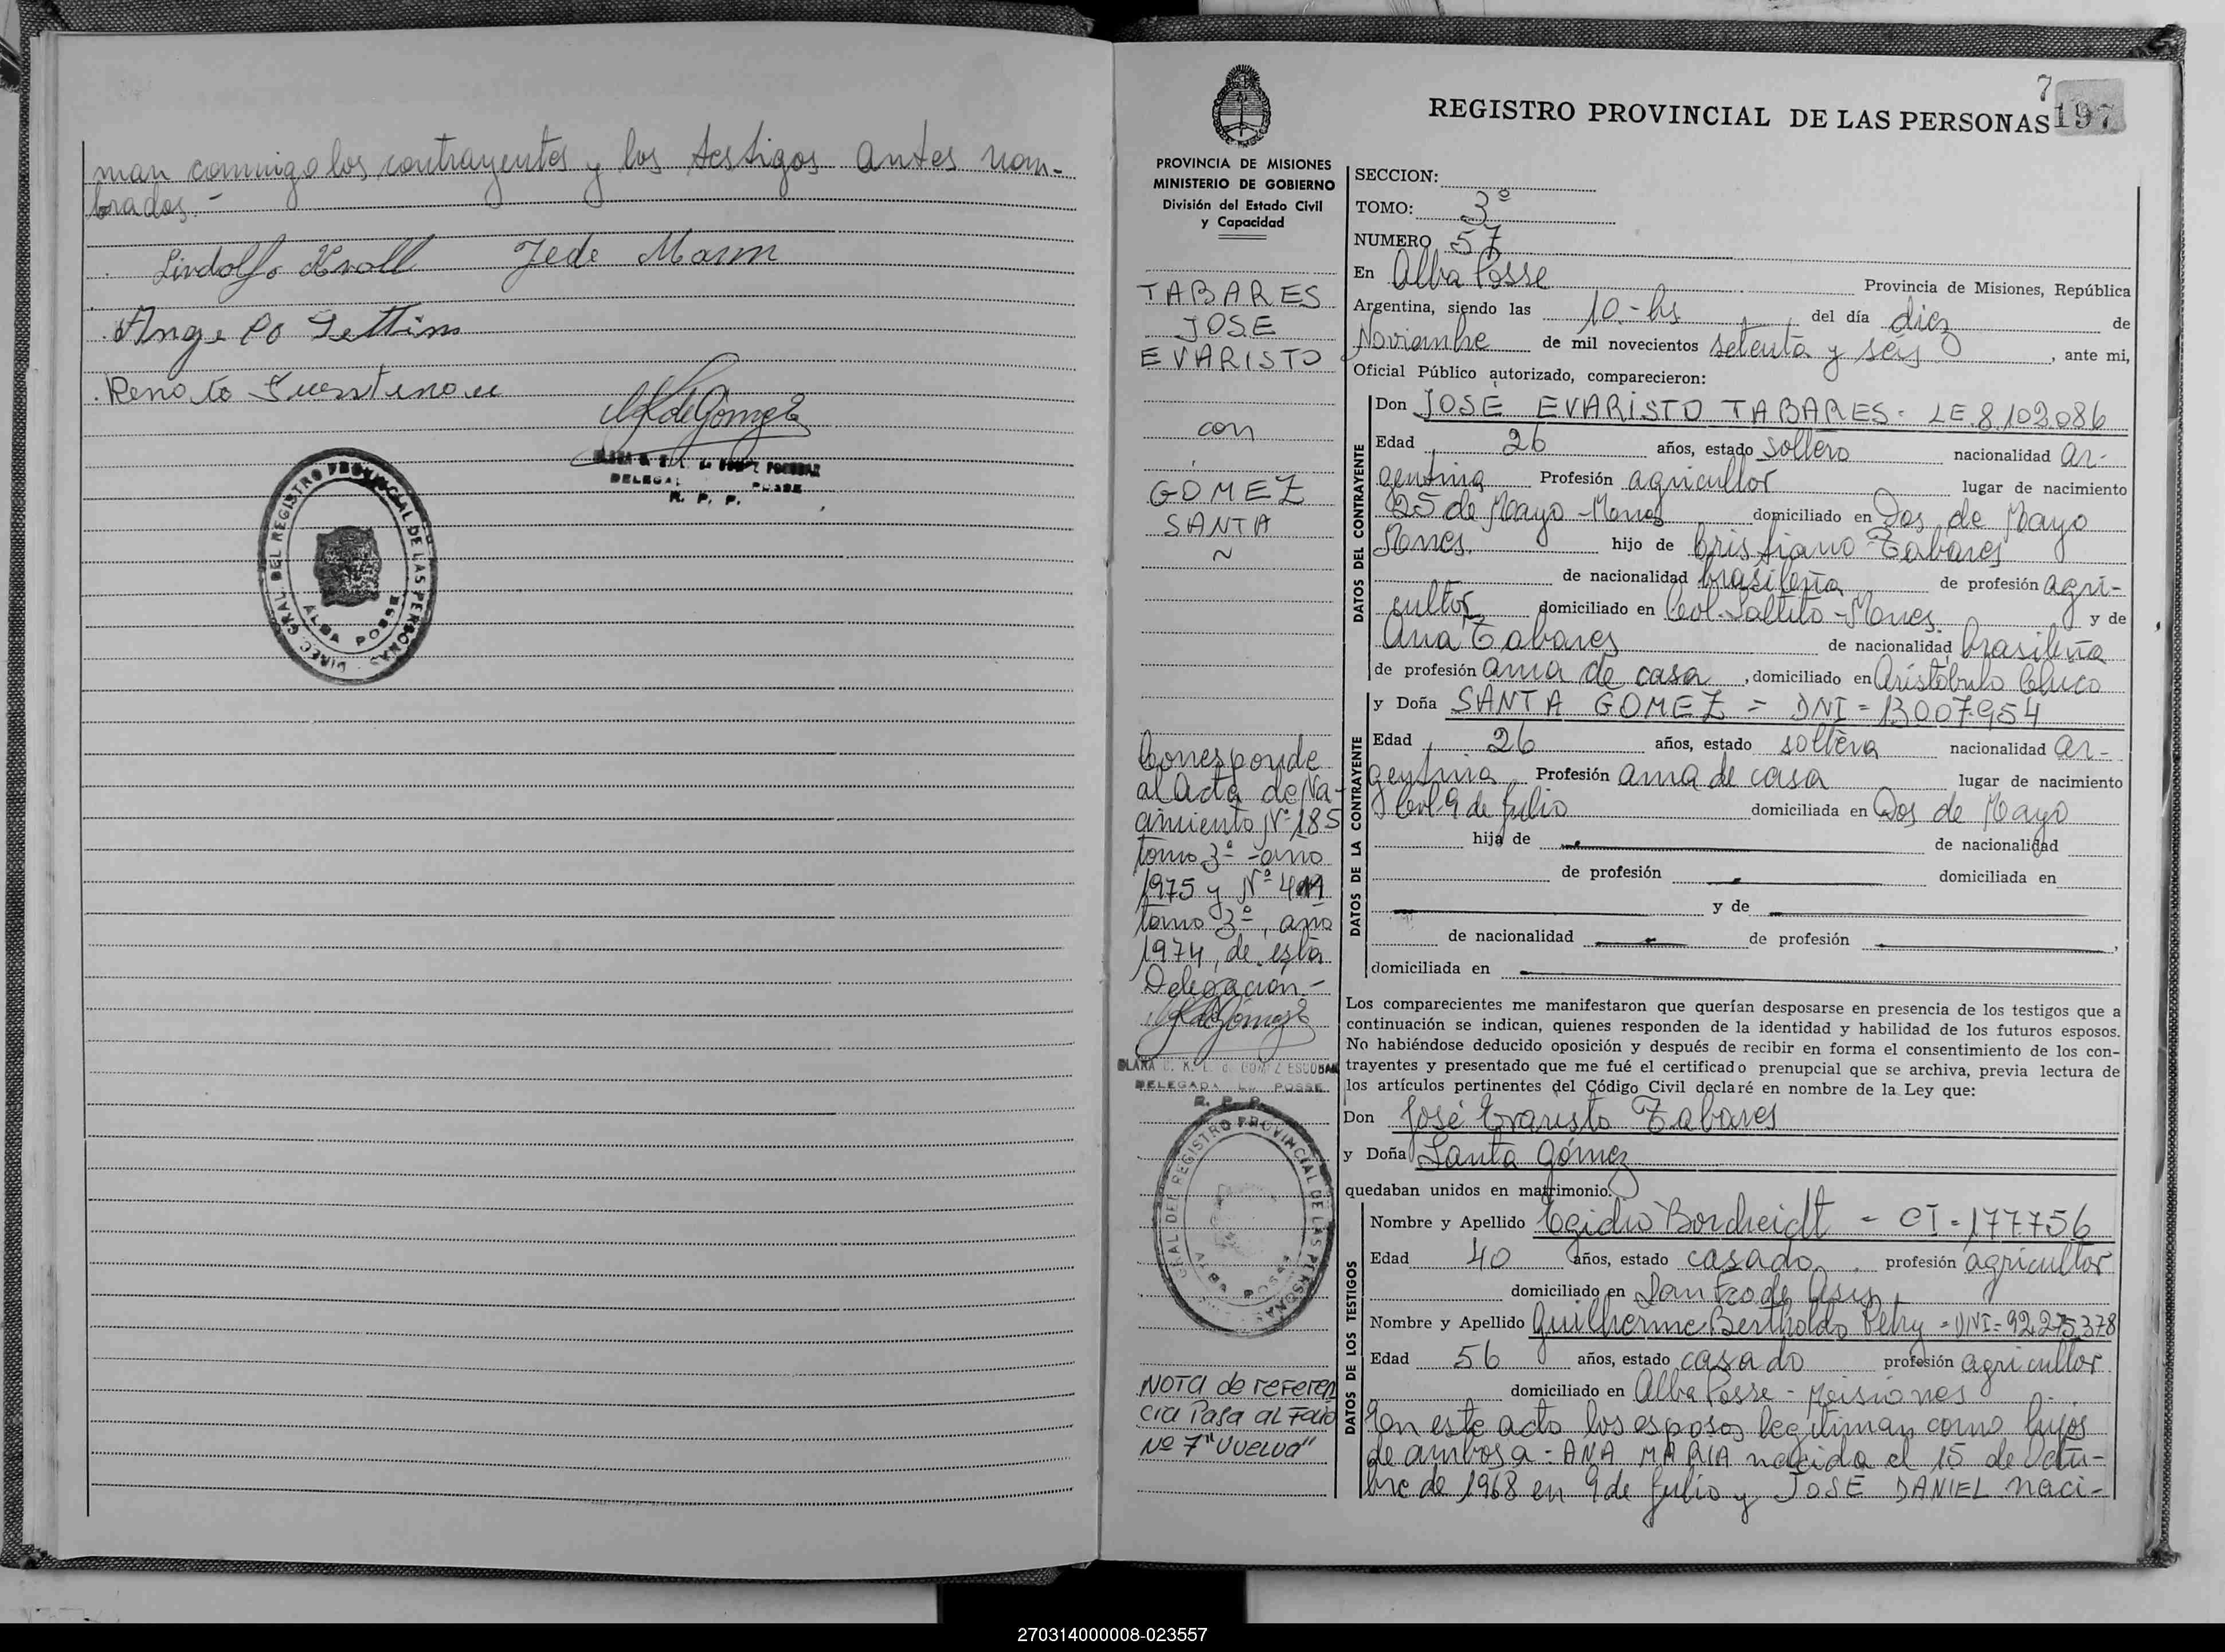 man conmigo los contrayentes y los testigos antes nom-
brados.-
Lindolfo Kroll
Angelo
Renato
DELEGAD POSSE
R. P. P.
DIREC. GRAL DEL REGISTRO PROVINCIAL DE LAS PERSONAS
ALBA POSSE
7
197
REGISTRO PROVINCIAL DE LAS PERSONAS
PROVINCIA DE MISIONES
MINISTERIO DE GOBIERNO
División del Estado Civil
y Capacidad
TABARES
JOSE
EVARISTO
con
GOMEZ
SANTA
~
Corresponde
al Acta de Na-
cimiento Nº 185
tomo 3º - año
1975 y Nº
tomo 3º, año
1974, de esta
Delegación.-
CLARA GOMEZ ESCOBAR
DELEGADA POSSE
R. P. P.
GRAL DEL REGISTRO PROVINCIAL DE LAS PERSONAS
ALBA POSSE
NOTA de referen
cia Pasa al Folio
Nº 7 "Vuelva"
SECCION:
TOMO: 3º
NUMERO 57
En Alba Posse Provincia de Misiones, República
Argentina, siendo las 10.- hs del día diez de
Noviembre de mil novecientos setenta y seis, ante mi,
Oficial Público autorizado, comparecieron:
DATOS DEL CONTRAYENTE
Don JOSE EVARISTO TABARES - LE.8.103.086
Edad 26 años, estado soltero nacionalidad ar-
gentina Profesión agricultor lugar de nacimiento
25 de Mayo - Mnes domiciliado en Dos de Mayo
Mnes. hijo de Cristiano Tabares
de nacionalidad brasileña de profesión agri-
cultor domiciliado en Col. Saltito - Mnes. y de
Ana Tabares de nacionalidad brasileña
de profesión ama de casa, domiciliado en Aristóbulo
DATOS DE LA CONTRAYENTE
y Doña SANTA GOMEZ = DNI = 13007954
Edad 26 años, estado soltera nacionalidad ar-
gentina Profesión ama de casa lugar de nacimiento
Col. 9 de Julio domiciliada en Dos de Mayo
hija de de nacionalidad
de profesión domiciliada en
y de
de nacionalidad de profesión ,
domiciliada en
Los comparecientes me manifestaron que querían desposarse en presencia de los testigos que a
continuación se indican, quienes responden de la identidad y habilidad de los futuros esposos.
No habiéndose deducido oposición y después de recibir en forma el consentimiento de los con-
trayentes y presentado que me fué el certificado prenupcial que se archiva, previa lectura de
los artículos pertinentes del Código Civil declaré en nombre de la Ley que:
Don José Evaristo Tabares
y Doña Santa Gómez
quedaban unidos en matrimonio.
DATOS DE LOS TESTIGOS
Nombre y Apellido Egidio Borcheidt - CI - 177756
Edad 40 años, estado casado profesión agricultor
domiciliado en San Fco de Asis
Nombre y Apellido Guilherme Bertholdo Petry - DNI = 92.275.378
Edad 56 años, estado casado profesión agricultor
domiciliado en Alba Posse - Misiones
En este acto los esposos legitiman como hijos
de ambos a: ANA MARIA nacida el 15 de Octu-
bre de 1968 en 9 de Julio y JOSE DANIEL naci-
270314000008-023557